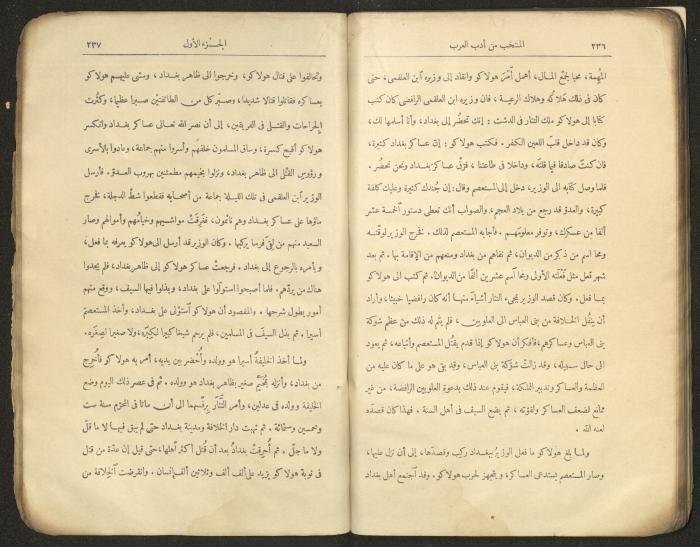 ٢٣٦
المنتخب من أدب العرب
المهمة، محبا لجمع المال، أهمل أمر هولاكو وانقاد إلى وزيره ابن العلقمى، حتى
كان فى ذلك هلاكه وهلاك الرعية، فان وزيره ابن العلقمى الرافضى كان كتب
كتابا إلى هولاكو ملك التتار فى الدشت : إنك تحضر إلى بغداد، وأنا أسلمها لك،
وكان قد داخل قلب اللعين الكفر. فكتب هولاكو : إن عساكر بغداد كثيرة،
فان كنت صادقا فيما قلته، وداخلا فى طاعتنا، فرق عساكر بغداد ونحن نحضر.
فلما وصل كتابه الى الوزير، دخل إلى المستعصم وقال : إن جندك كثيرة وعليك كلفة
كبيرة، والعدو قد رجع من بلاد العجم، والصواب أنك تعطى دستور الخمسة عشر
ألفا من عسكرك، وتوفر معلومهم. فأجابه المستعصم لذلك. فخرج الوزير لوقته
ومحا اسم من ذكر من الديوان، ثم نفاهم من بغداد ومنعهم من الإقامة بها. ثم بعد
شهر فعل مثل فعلته الأولى ومحا اسم عشرين ألفا من الديوان. ثم كتب الى هولاكو
بما فعل. وكان قصد الوزير بمجىء التتار أشياء منها أنه كان رافضيا خبيثا، وأراد
أن ينقل الخلافة من بنى العباس الى العلويين، فلم يتم له ذلك من عظم شوكة
بنى العباس وعساكرهم، فافتكر أن هولاكو إذا قدم يقتل المستعصم وأتباعه، ثم يعود
الى حال سبيله، وقد زالت شوكة بنى العباس، وقد بقى هو على ما كان عليه من
العظمة والعساكر وتدبير المملكة، فيقوم عند ذلك بدعوة العلويين الرافضة، من غير
ممانع لضعف العساكر ولقوته، ثم يضع السيف فى أهل السنة. فهذا كان قصده
لعنه الله.
ولما بلغ هولاكو ما فعل الوزير ببغداد ركب وقصدها، إلى أن نزل عليها،
وصار المستعصم يستدعى العساكر، ويتجهز لحرب هولاكو. وقد اجتمع أهل بغداد
الجزء الأول
٢٣٧
وتحالفوا على قتال هولاكو، وخرجوا الى ظاهر بغداد، ومشى عليهم هولاكو
بعساكره فقاتلوا قتالا شديدا، وصبر كل من الطائفتين صبرا عظيما، وكثرت
الجراحات والقتلى فى الفريقين، إلى أن نصر الله تعالى عساكر بغداد وانكسر
هولاكو أقبح كسرة، وساق المسلمون خلفهم وأسروا منهم جماعة، وعادوا بالأسرى
ورؤوس القتلى الى ظاهر بغداد، ونزلوا بخيمهم مطمئنين بهروب العدو. فأرسل
الوزير ابن العلقمى فى تلك الليلة جماعة من أصحابه فقطعوا شط الدجلة، فخرج
ماؤها على عساكر بغداد وهم نائمون، فغرقت مواشيهم وخيامهم وأموالهم وصار
السعيد منهم من لقى فرسا يركبها. وكان الوزير قد أرسل الى هولاكو يعرفه بما فعل،
ويأمره بالرجوع إلى بغداد. فرجعت عساكر هولاكو إلى ظاهر بغداد، فلم يجدوا
هناك من يردهم. فلما أصبحوا استولوا على بغداد، وبذلوا فيها السيف، ووقع منهم
أمور يطول شرحها. والمقصود أن هولاكو استولى على بغداد، وأخذ المستعصم
أسيرا. ثم بذل السيف فى المسلمين، فلم يرحم شيخا كبيرا لكبره، ولا صغيرا لصغره.
ولما أخذ الخليفة أسيرا هو وولده وأحضر بين يديه، أمر به هولاكو فأخرج
من بغداد، وأنزله بمخيم صغير بظاهر بغداد هو وولده. ثم فى عصر ذلك اليوم وضع
الخليفة وولده فى عدلين، وأمر التتار برفسهما الى أن ماتا فى المحرم سنة ست
وخمسين وستمائة. ثم نهبت دار الخلافة ومدينة بغداد حتى لم يبق فيها لا ما قل
ولا ما جل. ثم أحرقت بغداد بعد أن قتل أكثر أهلها، حتى قيل إن عدة من قتل
فى نوبة هولاكو يزيد على ألف ألف وثلاثين ألف إنسان. وانقرضت الخلافة من